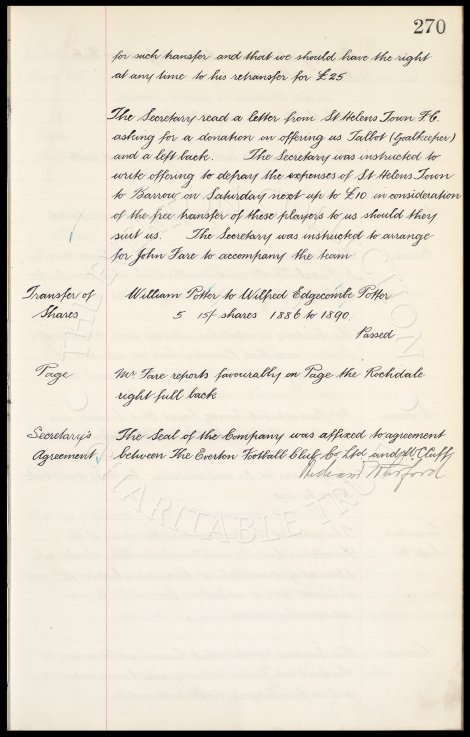 270
for such transfer and that we should have the right
at any time to his retransfer for £25
The Secretary read a letter from St Helens Town F.C.
asking for a donation in offering us Talbot (Goalkeeper)
and a left back. The Secretary was instructed to
write offering to defray the expenses of St Helens Town
to Barrow on Saturday next up to £10 in consideration
of the free transfer of these players to us should they
suit us. The Secretary was instructed to arrange
for John Fare to accompany the team
Transfer of William Potter to Wilfred Edgecombe Potter
Shares 5 15/- shares 1886 to 1890
Passed
Page Mr Fare reports favourably on Page the Rochdale
right full back
Secretary's The Seal of the Company was affixed to agreement
Agreement between The Everton Football Club Co Ltd and W. Cuff
CHARITABLE TRUST